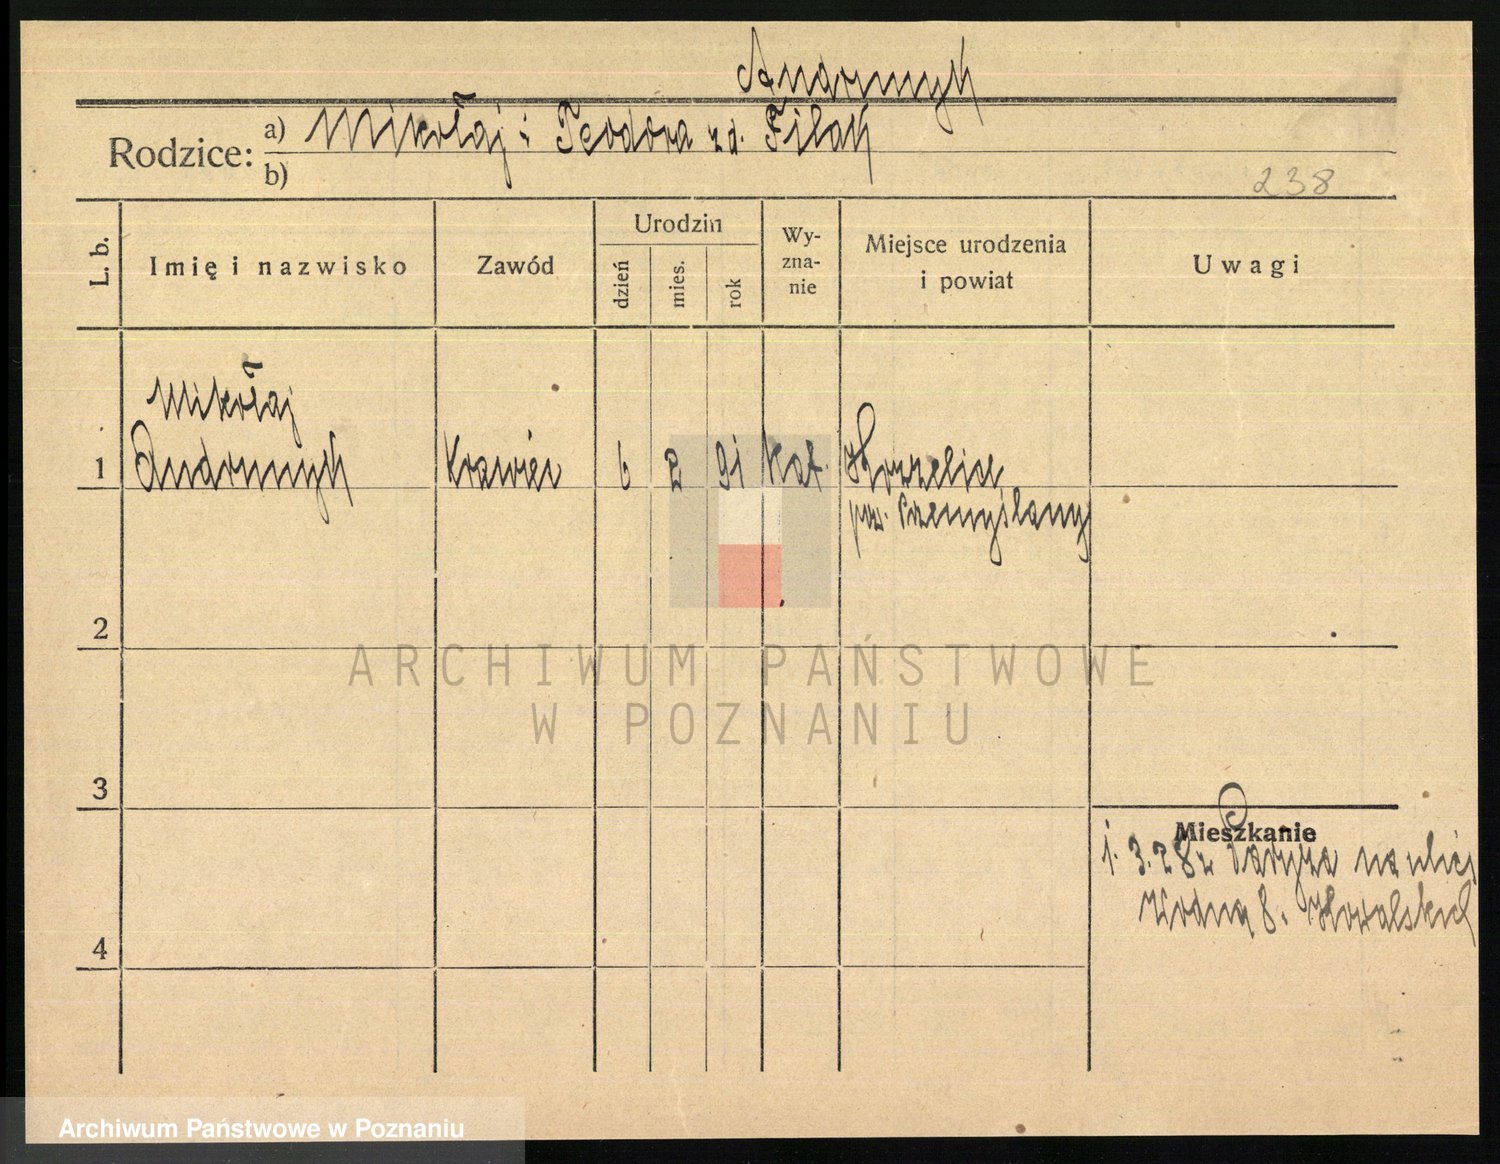 Andrmnych
Rodzice: a) Mikołaj i Teodora z d. Filak
b)
238
L. b. Imię i nazwisko Zawód Urodzin dzień mies. rok Wyznanie Miejsce urodzenia i powiat Uwagi
Mikołaj
1 krawiec 6 2 91 kat.
pow. Przemyślany
2
ARCHIWUM PAŃSTWOWE
W POZNANIU
3
Mieszkanie
1. 3. 28 z Paryża na ulicę
Wodną 8.
4
Archiwum Państwowe w Poznaniu